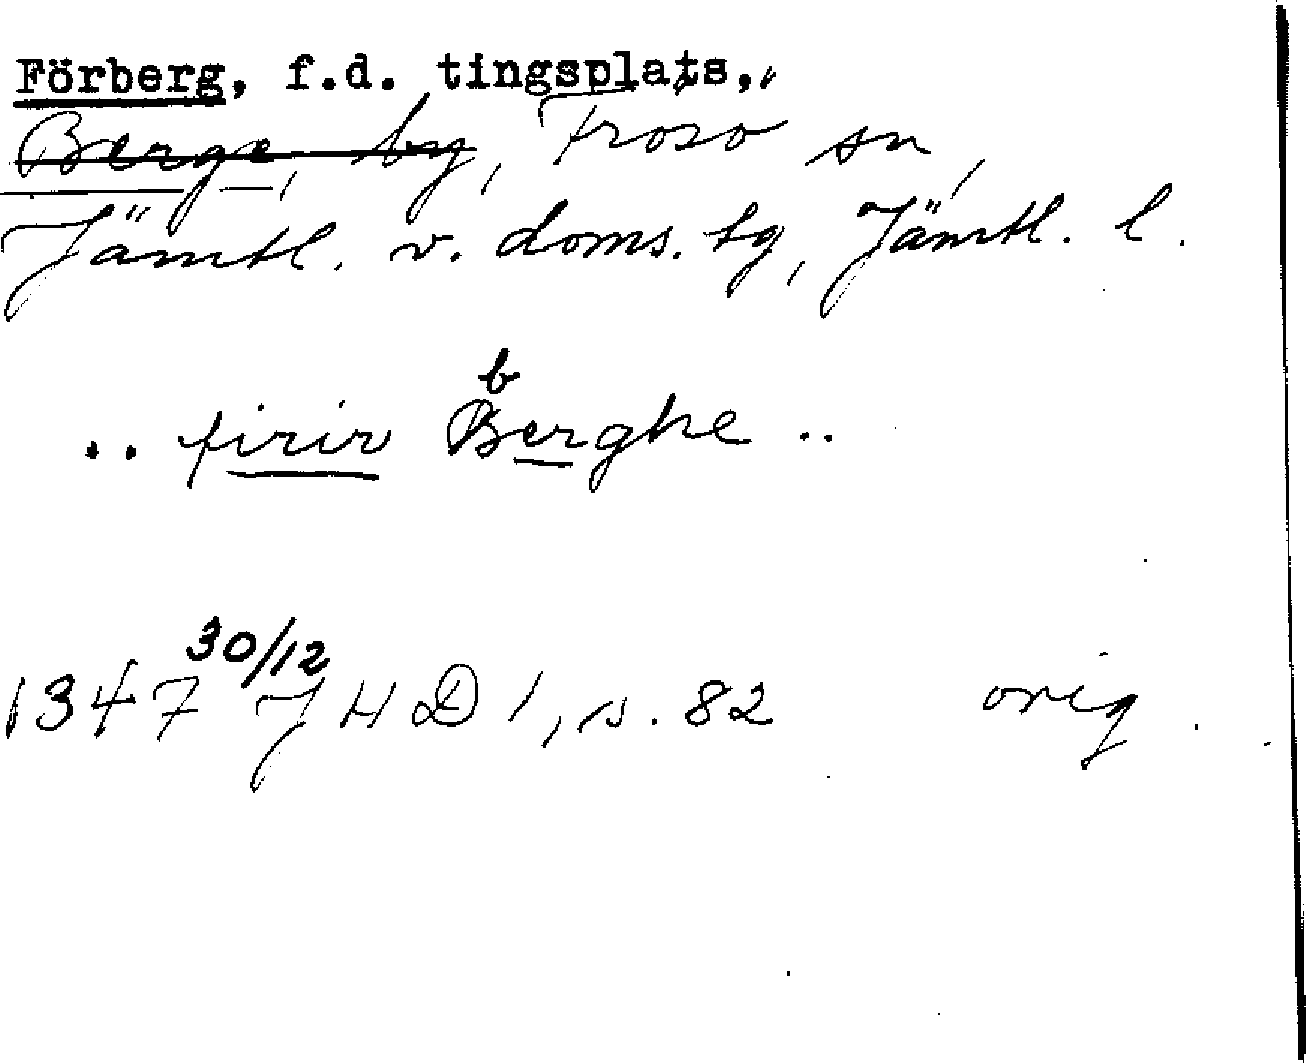 Förberg, f.d. tingsplats,
Berge, by, Frösö sn,
Jämtl. v. doms. tg, Jämtl. l.
b
.. firir Berghe ..
30/12
1347 JHD 1, s. 82 orig.